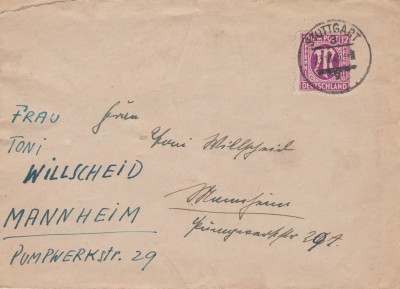 STUTTGART
12
DEUTSCHLAND
FRAU
TONI
WILLSCHEID
MANNHEIM
PUMPWERKstr. 29
Toni Willscheid
Mannheim
Pumpwerkstr 29